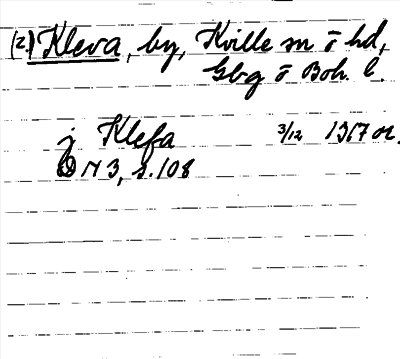 (2) Kleva, by, Kville sn o hd,
Gbg o Boh. l.
j Klefa 3/12 1367 or.
DN 3, s. 108